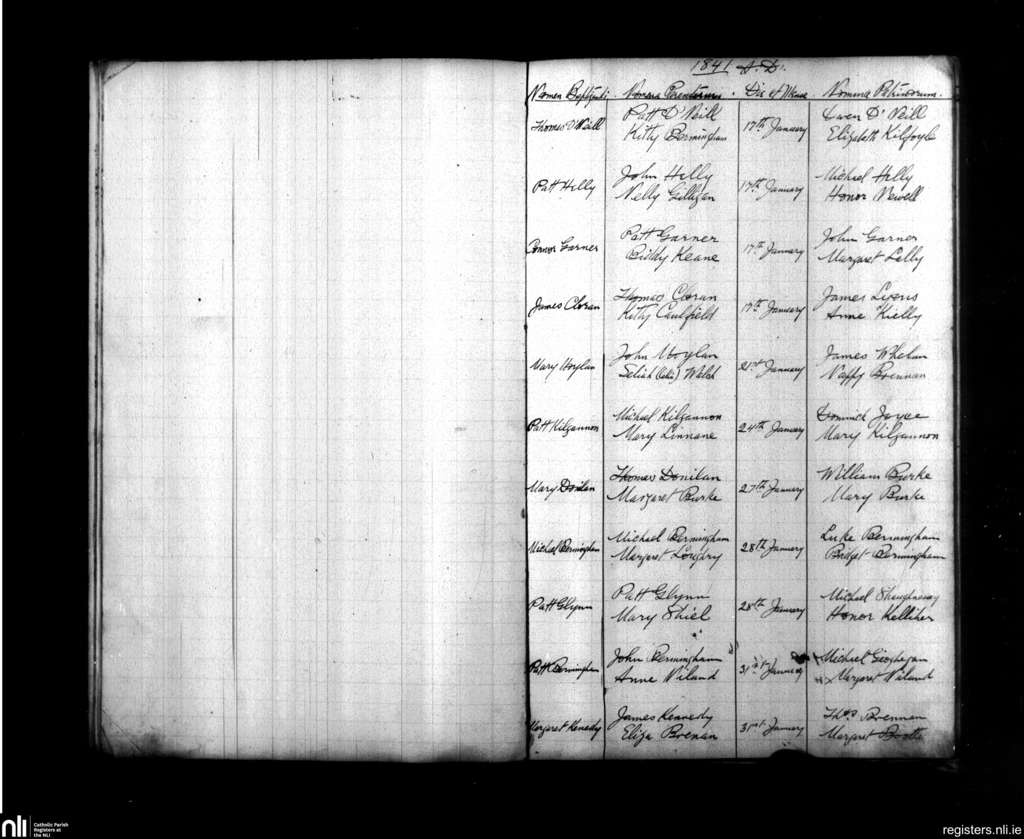 1841 A.D.
Nomen Baptizati. Nomina Parentum. Die et Mense. Nomina Patrinorum.
Patt O'Neill Owen O'Neill
Thomas O'Neill 17th January
Kitty Bermingham Elizabeth Kilfoyle
John Helly Michael Helly
Patt Helly 17th January
Nelly Gilligan Honor Newell
Patt Garner John Garner
Connor Garner 17th January
Biddy Keane Margaret Lally
Thomas Cloran James Lyons
James Cloran 17th January
Kitty Caulfield Anne Kielly
John Moylan James Whelan
Mary Moylan 21st January
Walsh Nappy Brennan
Michael Kilgannon Dominick Joyce
Patt Kilgannon 24th January
Mary Linnane Mary Kilgannon
Thomas Donilan William Burke
Mary Donilan 27th January
Margaret Burke Mary Burke
Michael Bermingham Luke Bermingham
Michael Bermingham 28th January
Margaret Bridget Bermingham
Patt Glynn Michael Shaughnessy
Patt Glynn 28th January
Mary Shiel Honor Kelliher
John Bermingham Michael Geoghegan
Patt Bermingham 31st January
Anne Niland Margaret Niland
James Kennedy Thos Brennan
Margaret Kennedy 31st January
Eliza Brenan Margaret
nli
Catholic Parish
Registers at
the NLI
registers.nli.ie